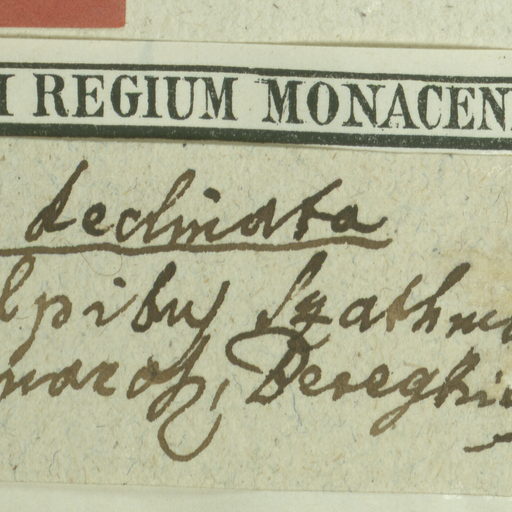 I REGIUM MONACEN
declinata
lpibus Szathma
maros, Bereghie